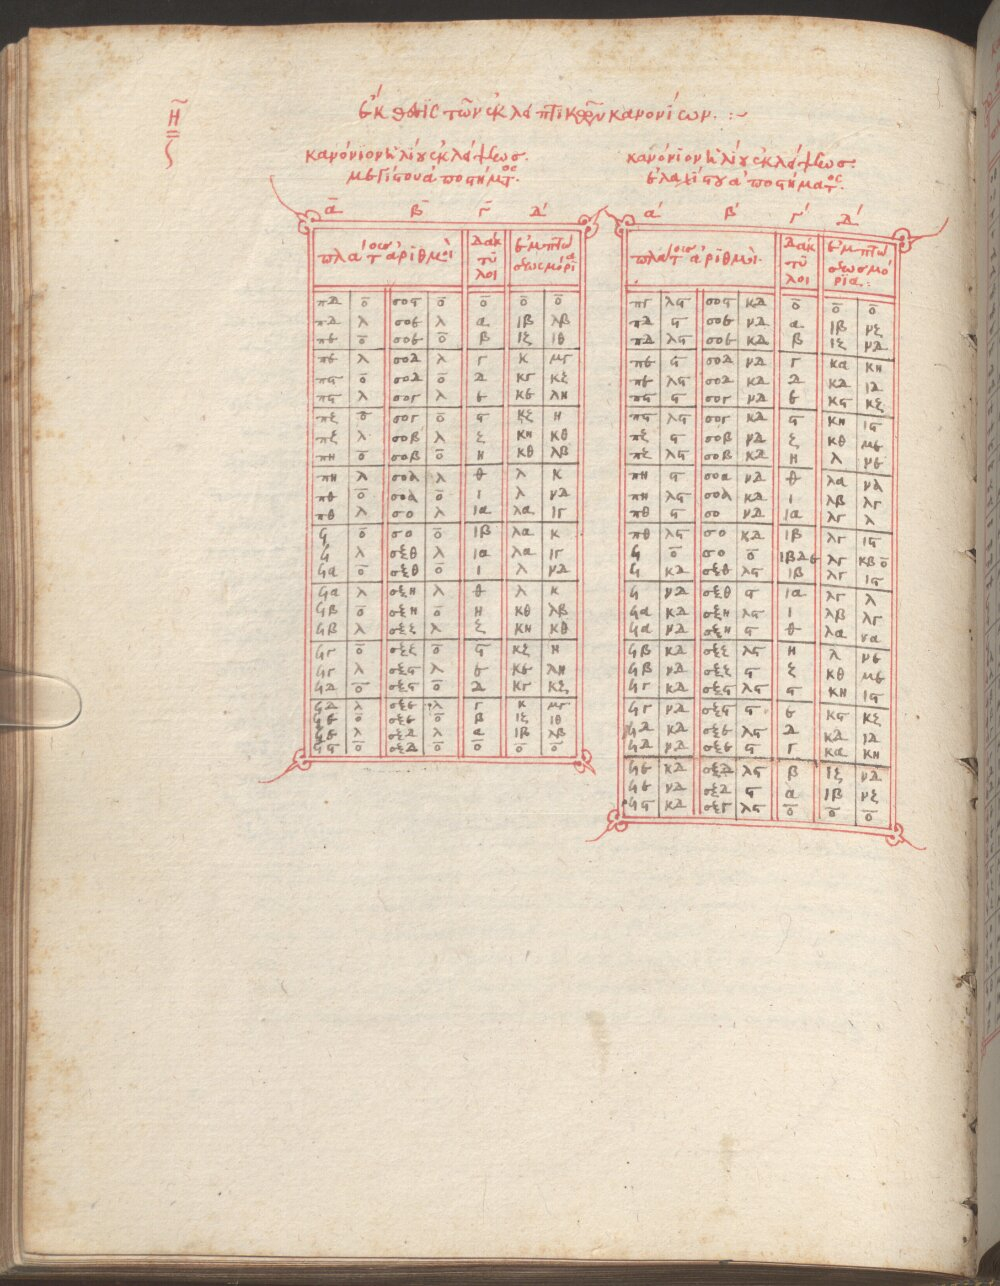 Η
ς
ἔκθεσις τῶν ἐκλειπτικῶν κανονίων :~
κανόνιον ἡλίου ἐκλείψεως
μεγίστου ἀποστήματος
α β γ δ
πλάτους ἀριθμοὶ
δάκτυλοι
ἐμπτώσεως μόρια
πδ ο σοϛ ο ο ο ο
πδ λ σοε λ α ιβ λβ
πε ο σοε ο β ιζ ιθ
πε λ σοδ λ γ κ μγ
πϛ ο σοδ ο δ κγ κζ
πϛ λ σογ λ ε κε λη
πζ ο σογ ο ϛ κζ η
πζ λ σοβ λ ζ κη κθ
πη ο σοβ ο η κθ λβ
πη λ σοα λ θ λ κ
πθ ο σοα ο ι λ νδ
πθ λ σο λ ια λα ιγ
ϟ ο σο ο ιβ λα κ
ϟ λ σξθ λ ια λα ιγ
ϟα ο σξθ ο ι λ νδ
ϟα λ σξη λ θ λ κ
ϟβ ο σξη ο η κθ λβ
ϟβ λ σξζ λ ζ κη κθ
ϟγ ο σξζ ο ϛ κζ η
ϟγ λ σξϛ λ ε κε λη
ϟδ ο σξϛ ο δ κγ κζ
ϟδ λ σξε λ γ κ μγ
ϟε ο σξε ο β ιζ ιθ
ϟε λ σξδ λ α ιβ λβ
ϟϛ ο σξδ ο ο ο ο
κανόνιον ἡλίου ἐκλείψεως
ἐλαχίστου ἀποστήματος
α β γ δ
πλάτους ἀριθμοὶ
δάκτυλοι
ἐμπτώσεως μόρια
πγ λϛ σοϛ κδ ο ο ο
πδ ϛ σοε νδ α ιβ νζ
πδ λϛ σοε κδ β ιζ νδ
πε ϛ σοδ νδ γ κα κη
πε λϛ σοδ κδ δ κδ ιδ
πϛ ϛ σογ νδ ε κϛ κζ
πϛ λϛ σογ κδ ϛ κη ιϛ
πζ ϛ σοβ νδ ζ κθ με
πζ λϛ σοβ κδ η λ νε
πη ϛ σοα νδ θ λα να
πη λϛ σοα κδ ι λβ λγ
πθ ϛ σο νδ ια λγ λ
πθ λϛ σο κδ ιβ λγ ιϛ
ϟ ο σο ο ιβδε λγ κβ ο
ϟ κδ σξθ λϛ ιβ λγ ιϛ
ϟ νδ σξθ ϛ ια λγ λ
ϟα κδ σξη λϛ ι λβ λγ
ϟα νδ σξη ϛ θ λα να
ϟβ κδ σξζ λϛ η λ νε
ϟβ νδ σξζ ϛ ζ κθ με
ϟγ κδ σξϛ λϛ ϛ κη ιϛ
ϟγ νδ σξϛ ϛ ε κϛ κζ
ϟδ κδ σξε λϛ δ κδ ιδ
ϟδ νδ σξε ϛ γ κα κη
ϟε κδ σξδ λϛ β ιζ νδ
ϟε νδ σξδ ϛ α ιβ νζ
ϟϛ κδ σξγ λϛ ο ο ο